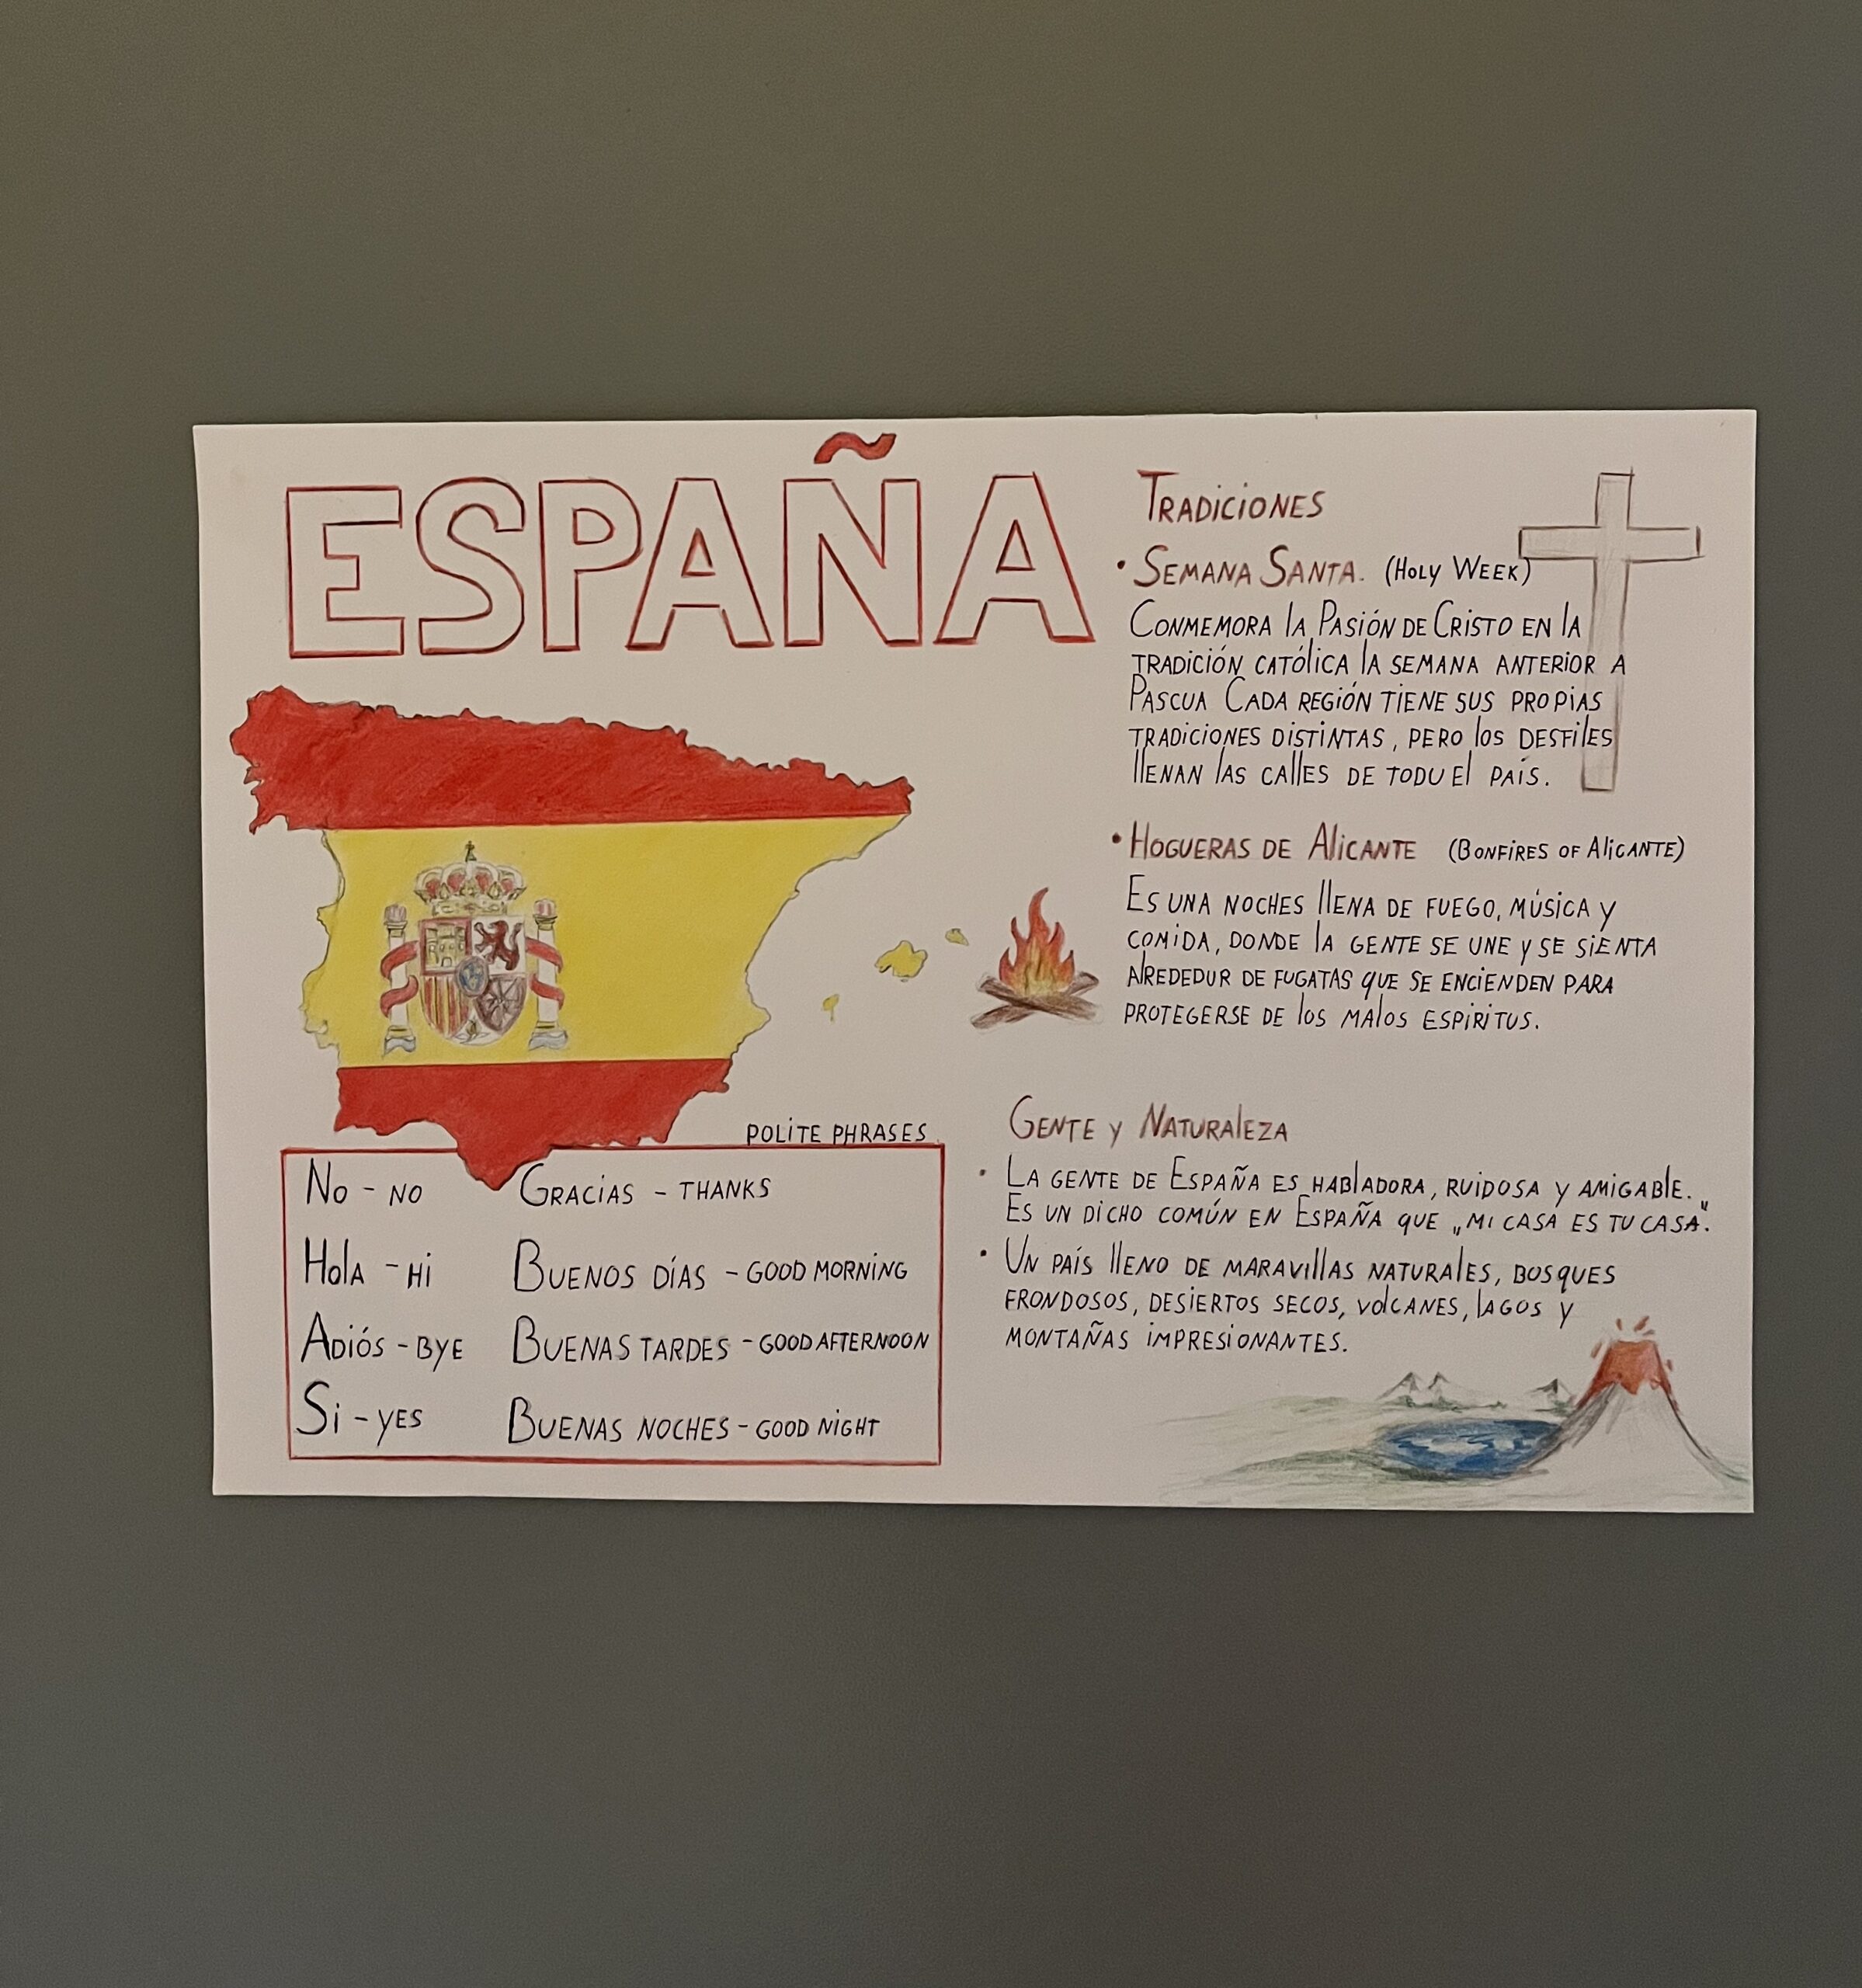 ESPAÑA
TRADICIONES
• SEMANA SANTA. (HOLY WEEK)
CONMEMORA lA PASIÓN DE CRISTO EN lA
TRADICIÓN CATÓlICA lA SEMANA ANTERIOR A
PASCUA CADA REGIÓN TIENE SUS PROPIAS
TRADICIONES DISTINTAS, PERO los DESFIlES
llENAN lAS CAllES DE TODU El PAÍS.
• HOGUERAS DE AliCANTE (BONFIRES OF AliCANTE)
ES UNA NOCHES llENA DE FUEGO, MÚSICA Y
COMIDA, DONDE lA GENTE SE UNE Y SE SIENTA
AlREDEDUR DE FUGATAS QUE SE ENCIENDEN PARA
PROTEGERSE DE los MAlOS ESPIRITUS.
GENTE Y NATURAlEZA
• LA GENTE DE ESPAÑA ES HABlADORA, RUIDOSA Y AMIGABlE.
ES UN DICHO COMÚN EN ESPAÑA QUE „MI CASA ES TU CASA".
• UN PAÍS llENO DE MARAVIllAS NATURAlES, BOSQUES
FRONDOSOS, DESIERTOS SECOS, VOlCANES, lAGOS Y
MONTAÑAS IMPRESIONANTES.
POLITE PHRASES
NO - NO GRACIAS - THANKS
HOlA - HI BUENOS DÍAS - GOOD MORNING
ADIÓS - BYE BUENAS TARDES - GOOD AFTERNOON
Si - YES BUENAS NOCHES - GOOD NIGHT